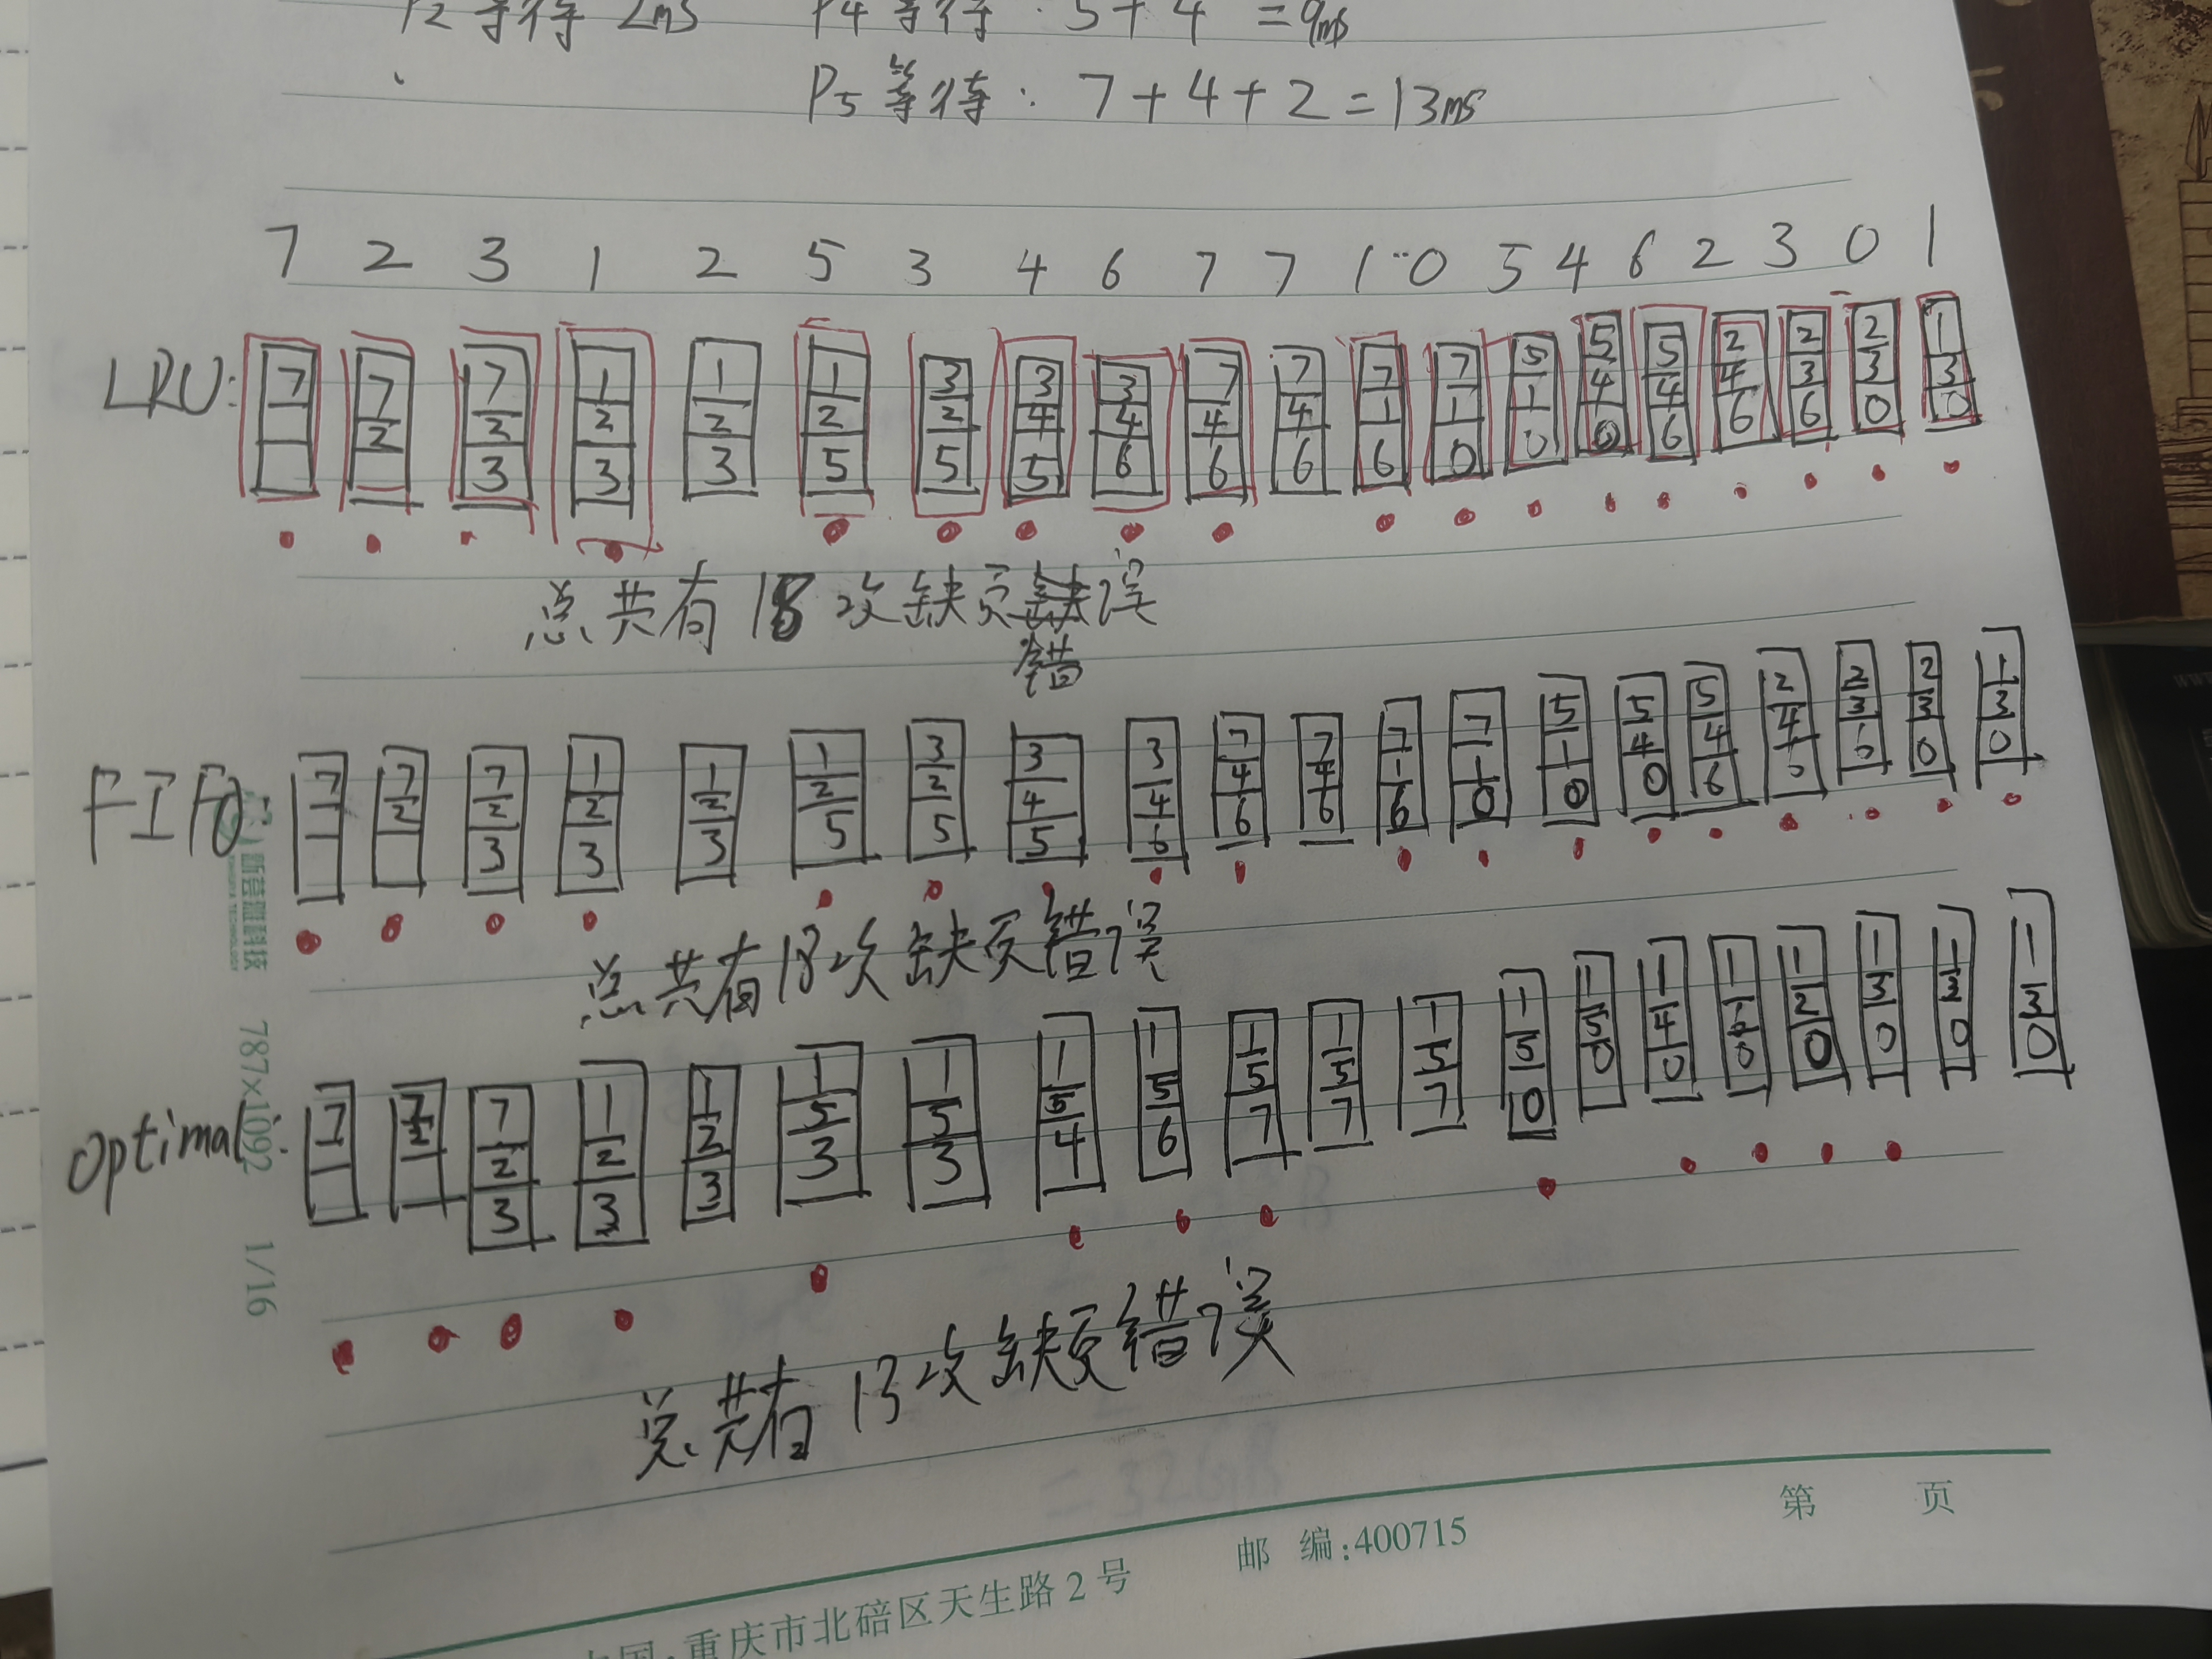 P2等待 2ms P4等待: 5+4 =9ms
P5等待: 7+4+2=13ms
7 2 3 1 2 5 3 4 6 7 7 1 0 5 4 6 2 3 0 1
LRU:
7 7 7 1 1 1 3 3 3 7 7 7 7 5 5 5 2 2 2 1
2 2 2 2 2 2 4 4 4 4 1 1 1 4 4 4 3 3 3
3 3 3 5 5 5 6 6 6 6 0 0 0 6 6 6 0 0
总共有18次缺页错误
FIFO
7 7 7 1 1 1 3 3 3 7 7 7 7 5 5 5 2 2 2 1
2 2 2 2 2 2 4 4 4 4 1 1 1 4 4 4 3 3 3
3 3 3 5 5 5 6 6 6 6 0 0 0 6 6 6 0 0
总共有18次缺页错误
Optimal:
7 7 7 1 1 1 1 1 1 1 1 1 1 1 1 1 1 1 1 1
2 2 2 2 5 5 5 5 5 5 5 5 5 4 6 2 3 3 3
3 3 3 3 3 4 6 7 7 7 0 0 0 0 0 0 0 0
总共有13次缺页错误
787×1092 1/16
第 页
中国·重庆市北碚区天生路2号 邮 编:400715